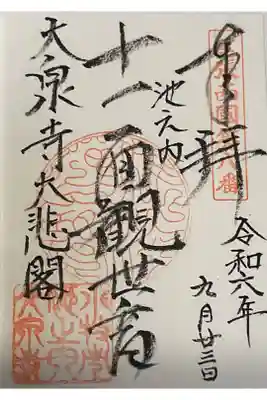 奉拝
令和六年
九月廿三日
池之内
十一面観世音
大泉寺大悲閣